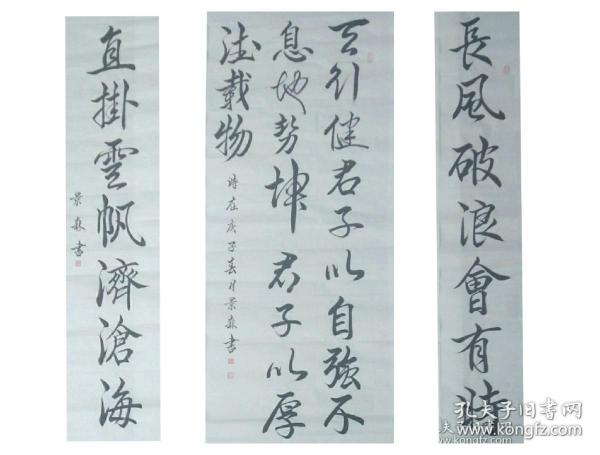 長風破浪會有時
天行健君子以自強不
息地势坤君子以厚
德載物
時在庚子春月景森書
直掛雲帆濟滄海
景森書
孔夫子旧书网
www.kongfz.com